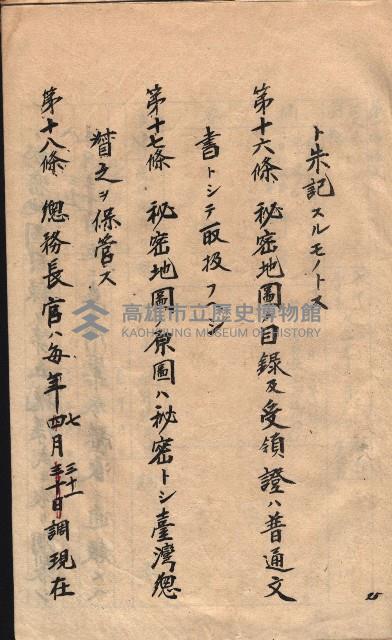 ト朱記スルモノトス
第十六條 秘密地圖ノ目録及受領證ハ普通文
書トシテ取扱フヘシ
第十七條 秘密地圖ノ原圖ハ秘密トシ臺灣總
督之ヲ保管ス
第十八條 總務長官ハ每年四七月三十一日調現在
高雄市立歷史博物館
KAOHSIUNG MUSEUM OF HISTORY
25